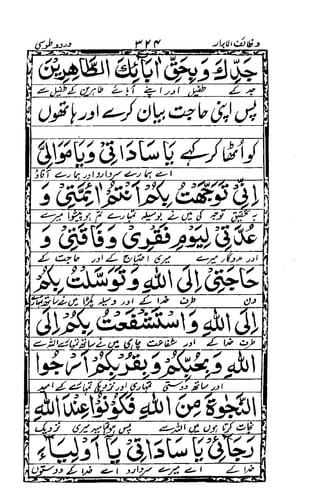 وظائف الابرار ۳۲۴ درود طوسی
جَدِّكَ وَبِحَقِّ اٰبَائِكَ الطَّاهِرِيْنَ
جد کے طفیل اور اپنے آبائے طاہرین کے طفیل سے
پس اپنی حاجت بیان کرے اور ہاتھوں
کو اٹھا کر کہے يَا سَادَاتِيْ وَيَا مَوَالِيَّ
اے ہمارے سردارو اے ہمارے آقاؤ
اِنِّيْ تَوَجَّهْتُ بِكُمْ اَنْتُمْ اَئِمَّتِيْ وَ
بہ تحقیق توجہ کی میں نے بوسیلہ تمہارے تم ہو پیشوا میرے
عُدَّتِيْ لِيَوْمِ فَقْرِيْ وَفَاقَتِيْ وَ
اور مددگار میرے میری احتیاج کے اور حاجت کے
حَاجَتِيْ اِلَى اللّٰهِ وَتَوَسَّلْتُ بِكُمْ
دن طرف خدا کے اور وسیلہ پکڑا میں نے ساتھ تمہارے
اِلَى اللّٰهِ وَاسْتَشْفَعْتُ بِكُمْ اِلَى
طرف خدا کے اور شفاعت چاہی میں نے ساتھ تمہارے اللہ سے
اللّٰهِ وَبِحُبِّكُمْ وَبِقُرْبِكُمْ اَرْجُوا
اور ساتھ دوستی تمہاری اور نزدیکی تمہاری کے امید
النَّجٰوةَ مِنَ اللّٰهِ فَكُوْنُوْا عِنْدَ اللّٰهِ
نجات کرتا ہوں میں اللہ سے پس ہو تم امید میری نزدیک
رَجَائِيْ يَا سَادَاتِيْ يَا اَوْلِيَاءَ
خدا کے اے میرے سردارو اے خدا کے دوستوں